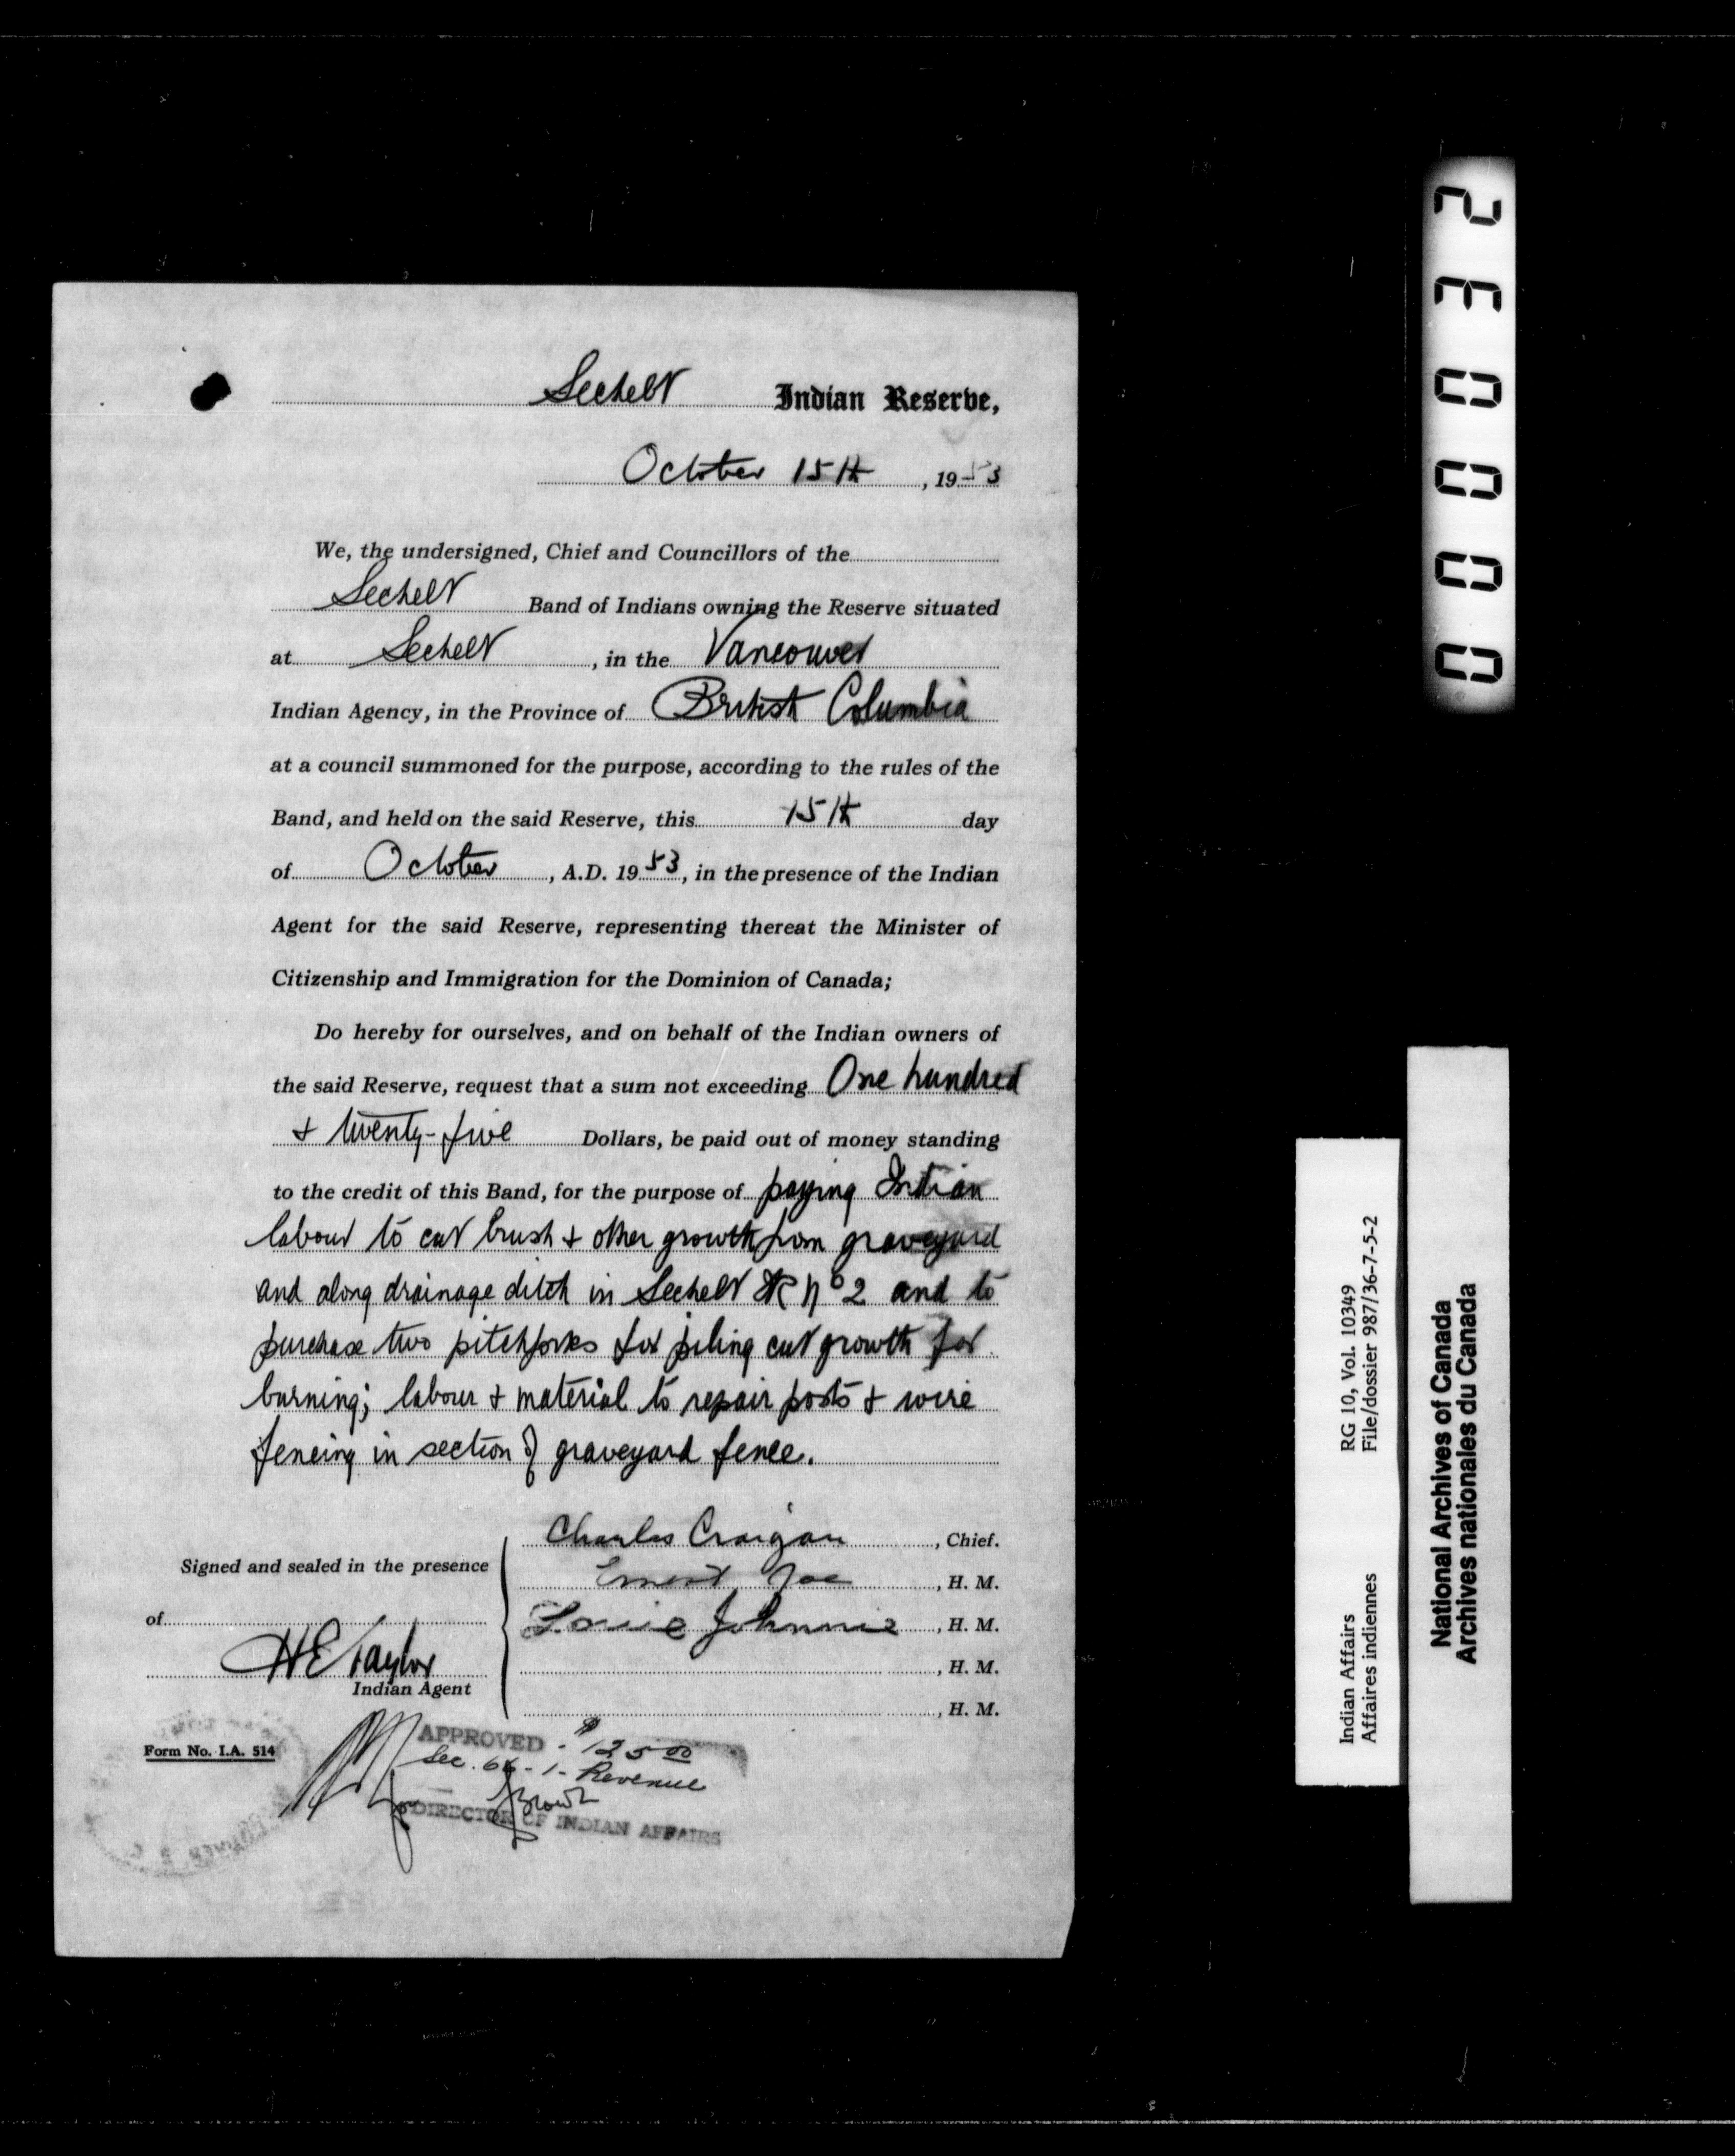 Sechelt Indian Reserve,
October 15th, 1953
We, the undersigned, Chief and Councillors of the
Sechelt Band of Indians owning the Reserve situated
at Sechelt, in the Vancouver
Indian Agency, in the Province of British Columbia
at a council summoned for the purpose, according to the rules of the
Band, and held on the said Reserve, this 15th day
of October, A.D. 1953, in the presence of the Indian
Agent for the said Reserve, representing thereat the Minister of
Citizenship and Immigration for the Dominion of Canada;
Do hereby for ourselves, and on behalf of the Indian owners of
the said Reserve, request that a sum not exceeding One hundred
+ twenty-five Dollars, be paid out of money standing
to the credit of this Band, for the purpose of paying Indian
labour to cut brush + other growth from graveyard
and along drainage ditch in Sechelt IR No 2 and to
purchase two pitchforks for piling cut growth for
burning; labour + material to repair posts + wire
fencing in section of graveyard fence.
Charles Craigan, Chief.
Signed and sealed in the presence
Ernest Joe, H. M.
of
Louie Johnnie, H. M.
HE Taylor
, H. M.
Indian Agent
, H. M.
Form No. I.A. 514
APPROVED - $125.00
Sec. 66-1- Revenue
for
DIRECTOR OF INDIAN AFFAIRS
00032
Indian Affairs RG 10, Vol. 10349
Affaires indiennes File/dossier 987/36-7-5-2
National Archives of Canada
Archives nationales du Canada